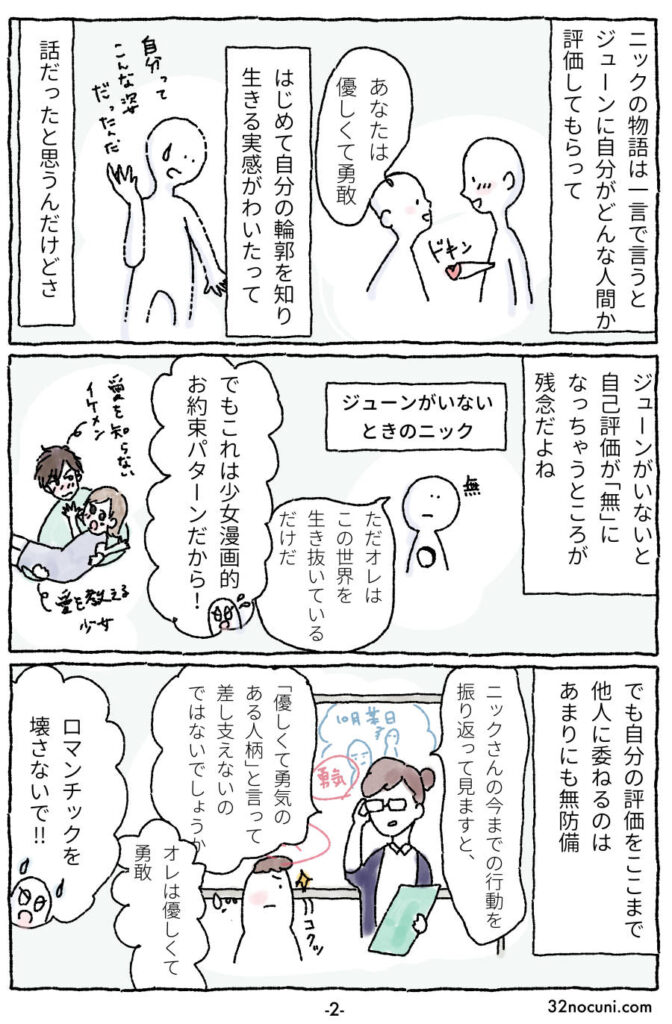 ニックの物語は一言で言うと
ジューンに自分がどんな人間か
評価してもらって
あなたは
優しくて勇敢
ドキン
はじめて自分の輪郭を知り
生きる実感がわいたって
自分って
こんな姿
だったんだ
話だったと思うんだけどさ
ジューンがいないと
自己評価が「無」に
なっちゃうところが
残念だよね
ジューンがいない
ときのニック
無
ただオレは
この世界を
生き抜いている
だけだ
でもこれは少女漫画的
お約束パターンだから!
愛を知らない
イケメン
愛を教える
少女
でも自分の評価をここまで
他人に委ねるのは
あまりにも無防備
ニックさんの今までの行動を
振り返って見ますと、
勇気
「優しくて勇気の
ある人柄」と言って
差し支えないの
ではないでしょうか
コクッ
オレは優しくて
勇敢
ロマンチックを
壊さないで!!
-2-
32nocuni.com